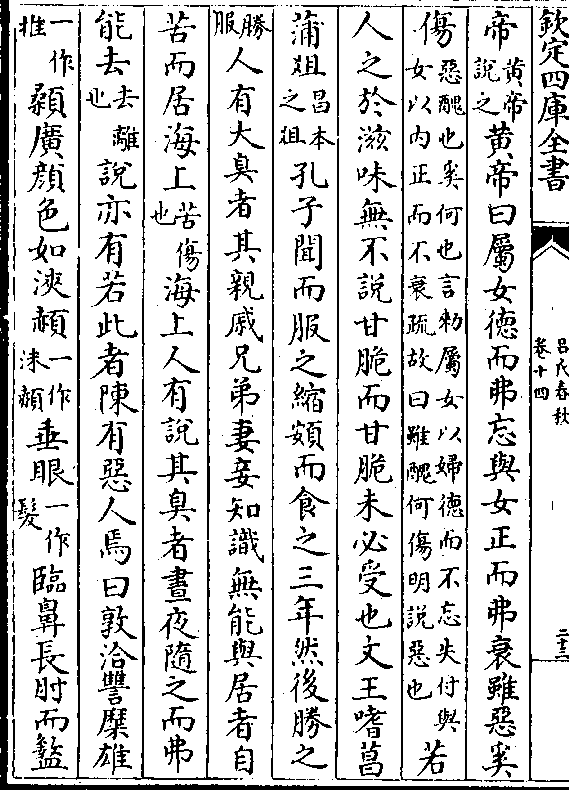 欽定四庫全書
呂氏春秋
卷十四
二十三
帝黄帝說之黄帝曰屬女德而弗忘與女正而弗衰雖惡奚
傷惡醜也奚何也言勑屬女以婦德而不忘失付與女以内正而不衰疏故曰雖醜何傷明說惡也若
人之於滋味無不說甘脆而甘脆未必受也文王嗜菖
蒲爼昌本之爼孔子聞而服之縮頞而食之三年然後勝之
勝服人有大臭者其親戚兄弟妻妾知識無能與居者自
苦而居海上苦傷也海上人有說其臭者晝夜隨之而弗
能去去離也說亦有若此者陳有惡人焉曰敦洽讐糜雄
一作推顙廣顔色如浹赬一作沫赬垂眼一作髮臨鼻長肘而盭